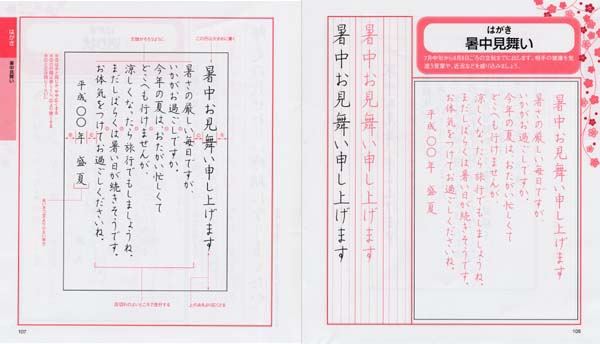 はがき
暑中見舞い
7月中旬から8月8日ごろの立秋までに出します。相手の健康を気
遣う言葉や、近況などを盛り込みましょう。
暑中お見舞い申し上げます
暑さの厳しい毎日ですが、
いかがお過ごしですか。
今年の夏は、おたがい忙しくて
どこへも行けませんが、
涼しくなったら旅行でもしましょうね。
まだしばらくは暑い日が続きそうです。
お体気をつけてお過ごしくださいね。
平成〇〇年 盛夏
暑中お見舞い申し上げます
暑中お見舞い申し上げます
106
はがき
暑中見舞い
この行は大きめに書く
文頭がそろうように
暑中お見舞い申し上げます
暑さの厳しい毎日ですが、
いかがお過ごしですか。
今年の夏は、おたがい忙しくて
どこへも行けませんが、
涼しくなったら旅行でもしましょうね。
まだしばらくは暑い日が続きそうです。
お体気をつけてお過ごしくださいね。
平成〇〇年 盛夏
区切れのよいところで改行する
107